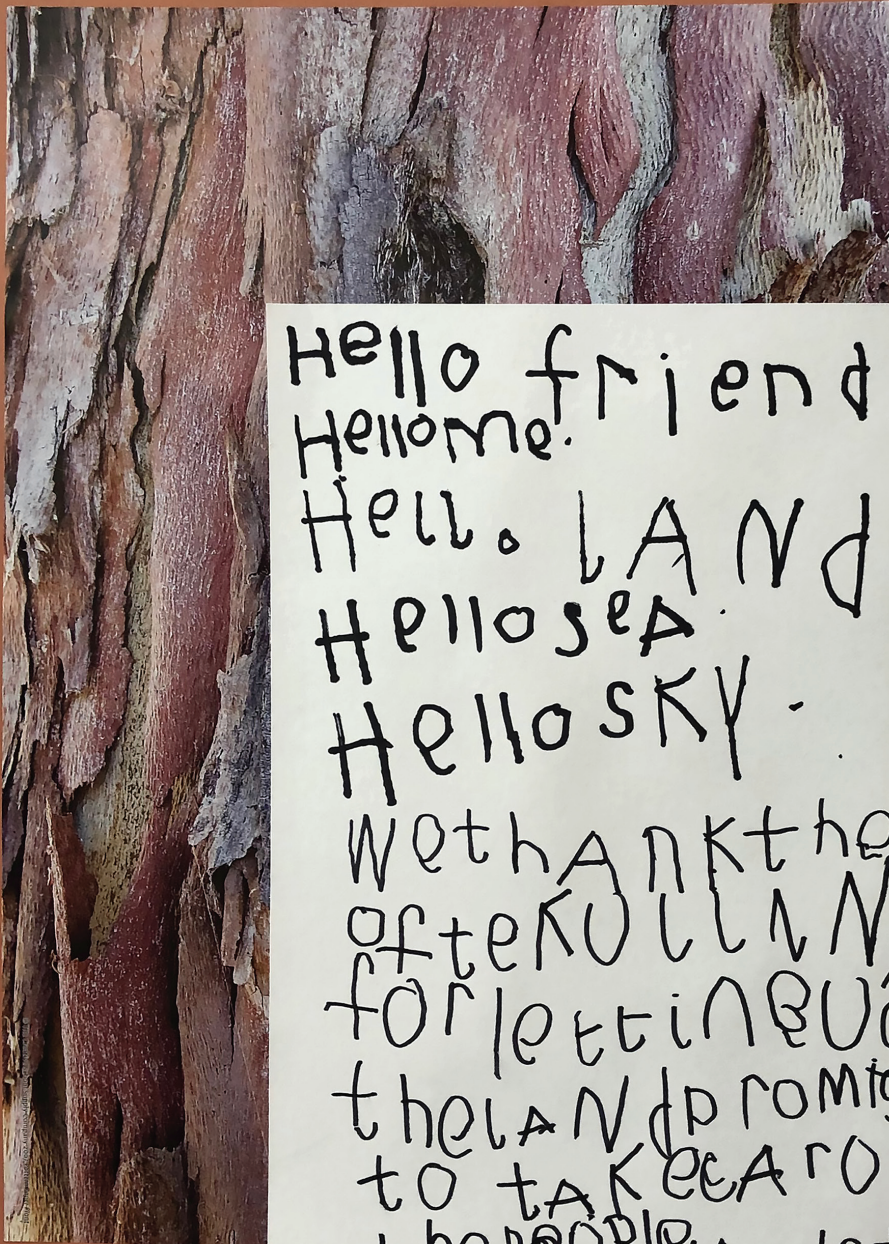 Hello friend
Hellome.
Hello lANd
HelloseA.
HelloSKY.
WethAnKthe
ofteKUllNN
forlettingU
thelANdpromi
to tAKecAro
he people